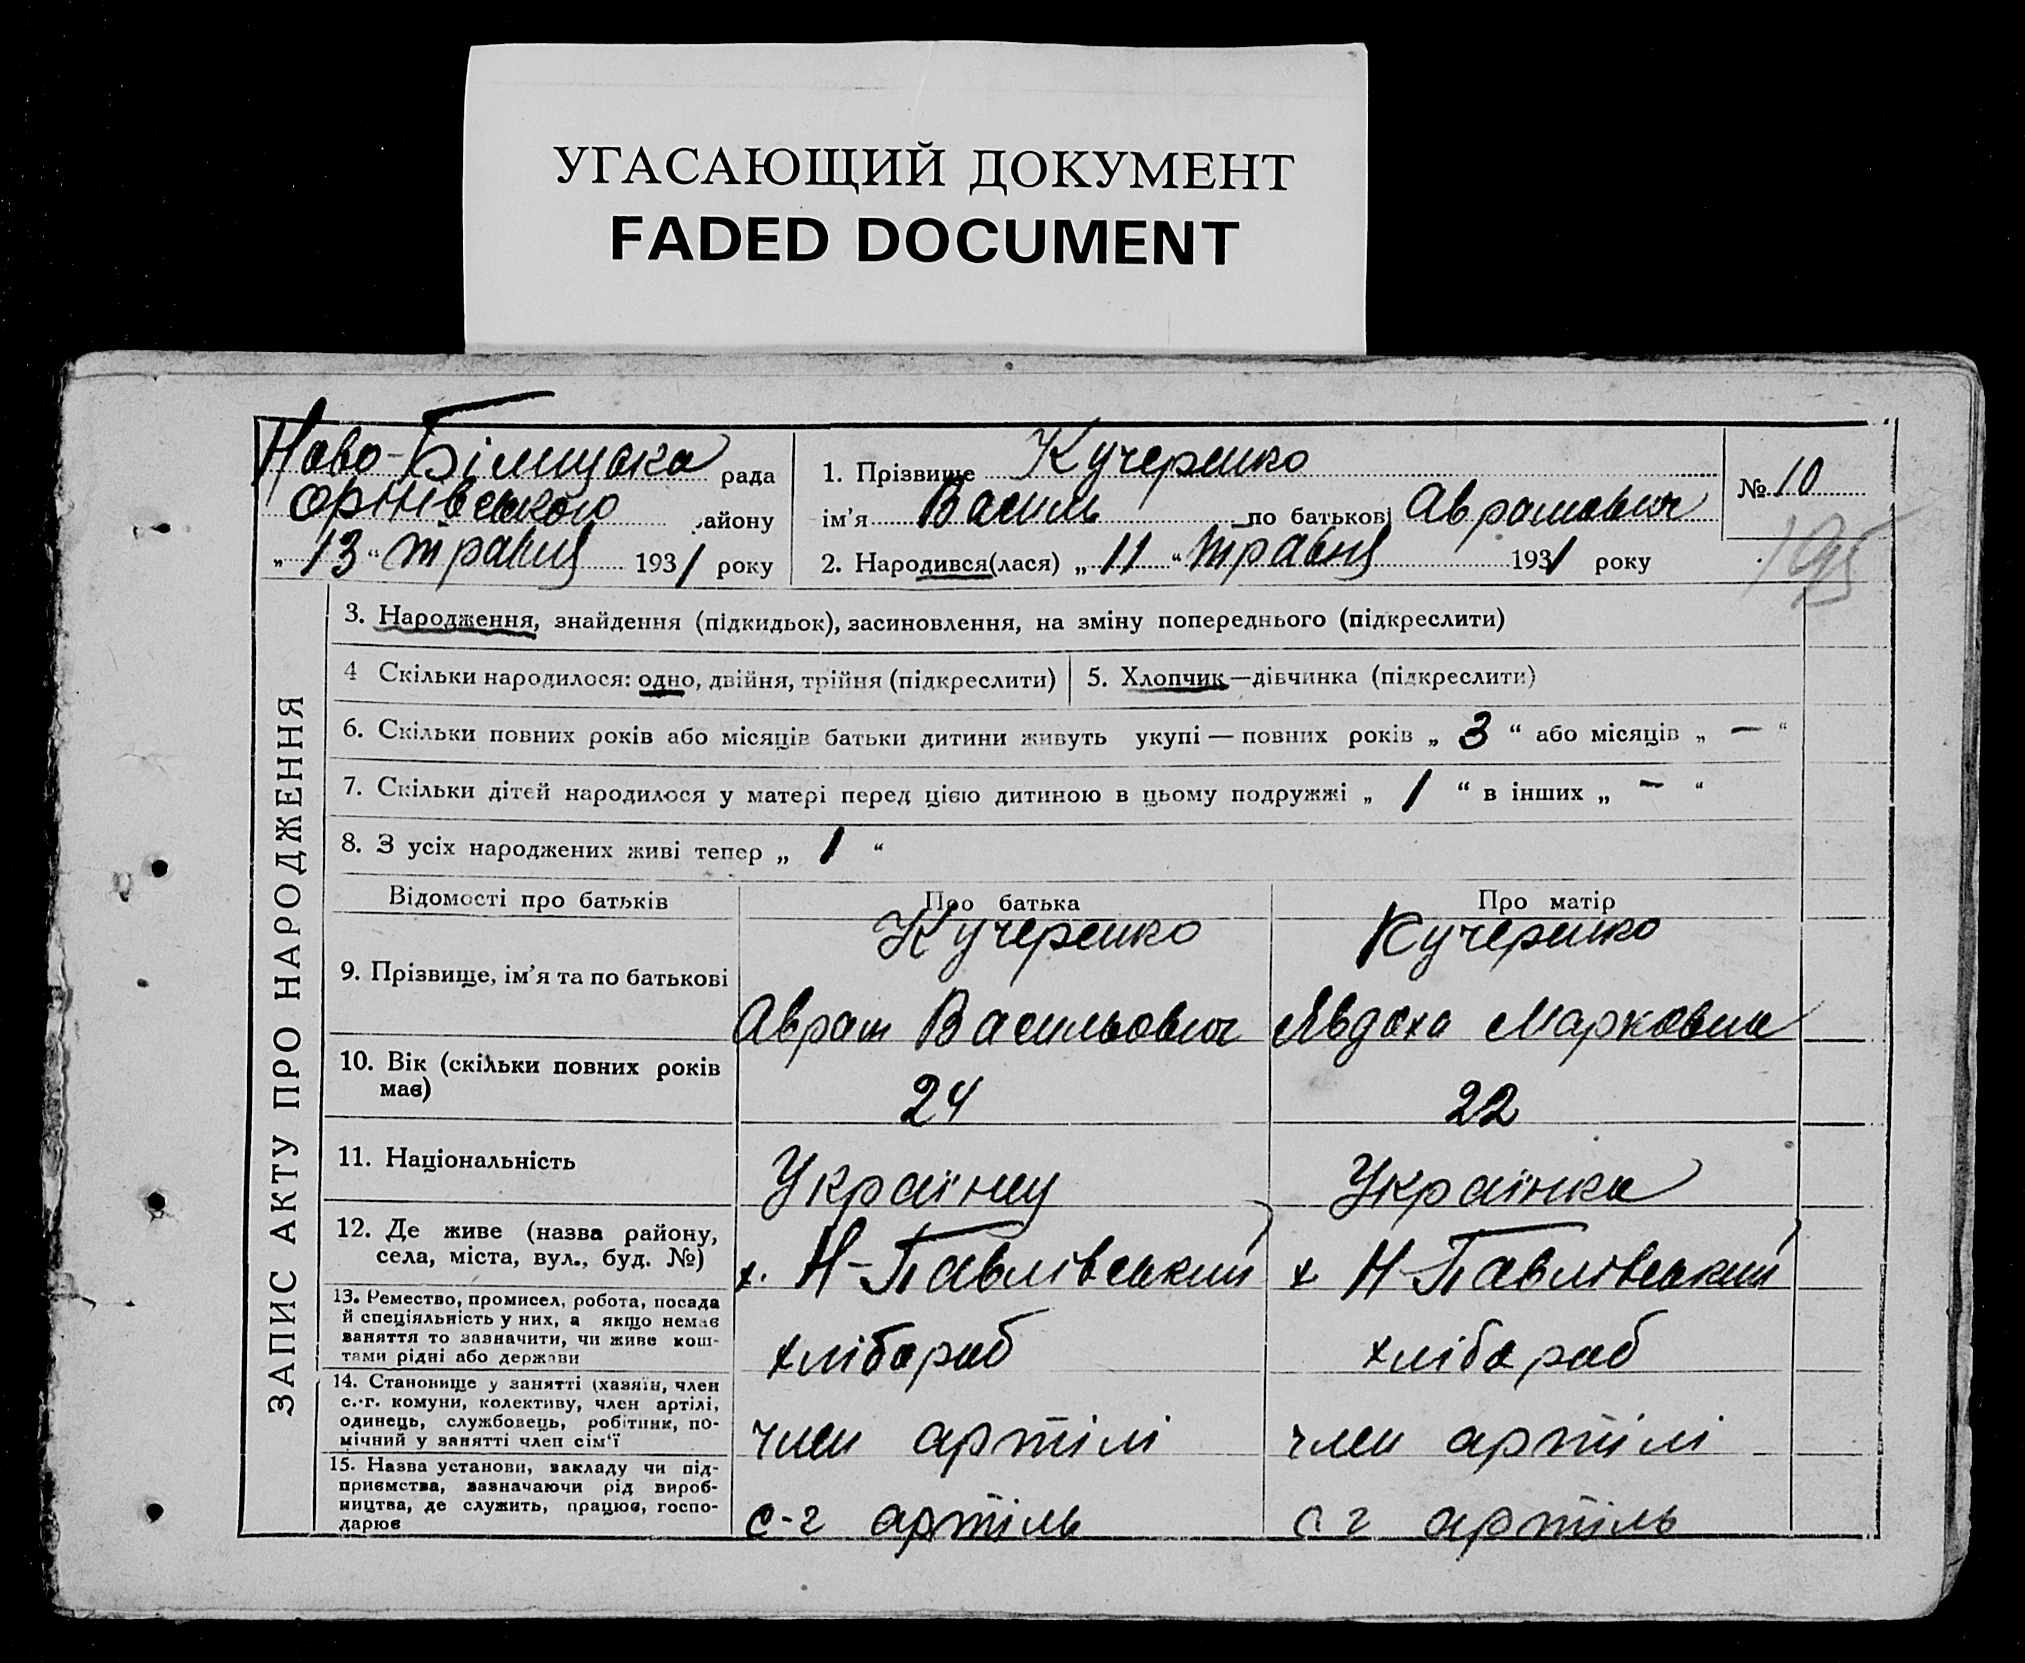 УГАСАЮЩИЙ ДОКУМЕНТ
FADED DOCUMENT
Ново-Білицька рада
району
„ 13 “ травня 1931 року
1. Прізвище Кучеренко
ім’я Василь по батькові Аврамович
2. Народився(лася) „ 11 “ травня 1931 року
№ 10
195
ЗАПИС АКТУ ПРО НАРОДЖЕННЯ
3. Народження, знайдення (підкидьок), засиновлення, на зміну попереднього (підкреслити)
4 Скільки народилося: одно, двійня, трійня (підкреслити)
5. Хлопчик—дівчинка (підкреслити)
6. Скільки повних років або місяців батьки дитини живуть укупі — повних років „ 3 “ або місяців „ — “
7. Скільки дітей народилося у матері перед цією дитиною в цьому подружжі „ 1 “ в інших „ — “
8. З усіх народжених живі тепер „ 1 “
Відомості про батьків Про батька Про матір
9. Прізвище, ім’я та по батькові
Кучеренко
Аврам Васильович
Кучеренко
Явдоха Марковна
10. Вік (скільки повних років
має)
24
22
11. Національність
Українец
Українка
12. Де живе (назва району,
села, міста, вул., буд. №)
х. Н-Павлівський
х Н-Павлівський
13. Ремество, промисел, робота, посада
й спеціяльність у них, а якщо немає
заняття то зазначити, чи живе кош-
тами рідні або держави
хлібароб
хлібароб
14. Становище у занятті (хазяїн, член
с.-г. комуни, колективу, член артілі,
одинець, службовець, робітник, по-
мічний у занятті член сім‘ї
член артілі
член артілі
15. Назва установи, закладу чи під-
приємства, зазначаючи рід вироб-
ництва, де служить, працює, госпо-
дарює
с-г артіль
с г артіль